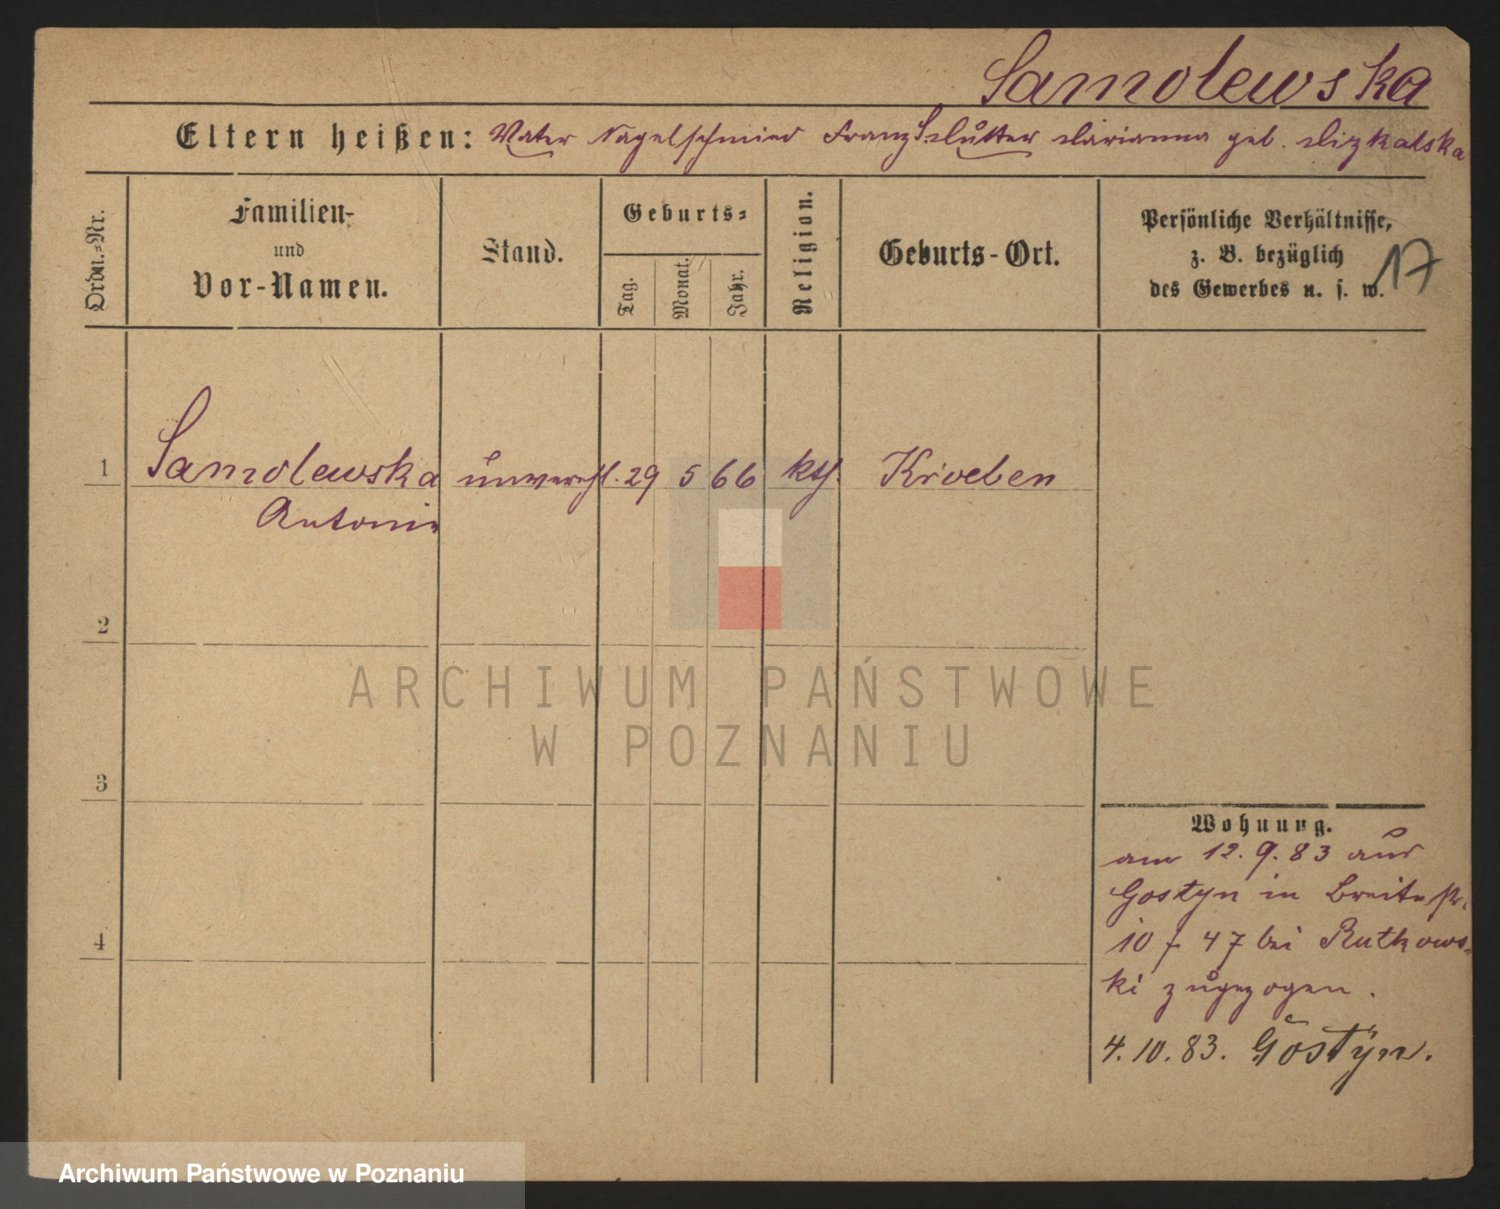 Samolewska
Eltern heißen: Vater Nagelschmied Franz S. Mutter Marianna geb.
Ordn.-Nr.
Familien-
und
Vor-Namen.
Stand.
Geburts-
Tag.
Monat.
Jahr.
Religion.
Geburts-Ort.
Persönliche Verhältnisse,
z. B. bezüglich
des Gewerbes u. s. w.
17
1 Samolewska unverehl. 29 5 66 kth. Kroeben
Antonie
2
3
4
Wohnung.
am 12.9.83 aus
Gostyn in Breitestr.
10 47 bei Rutkows-
ki zugezogen.
4.10.83. Gostÿn.
ARCHIWUM PAŃSTWOWE
W POZNANIU
Archiwum Państwowe w Poznaniu